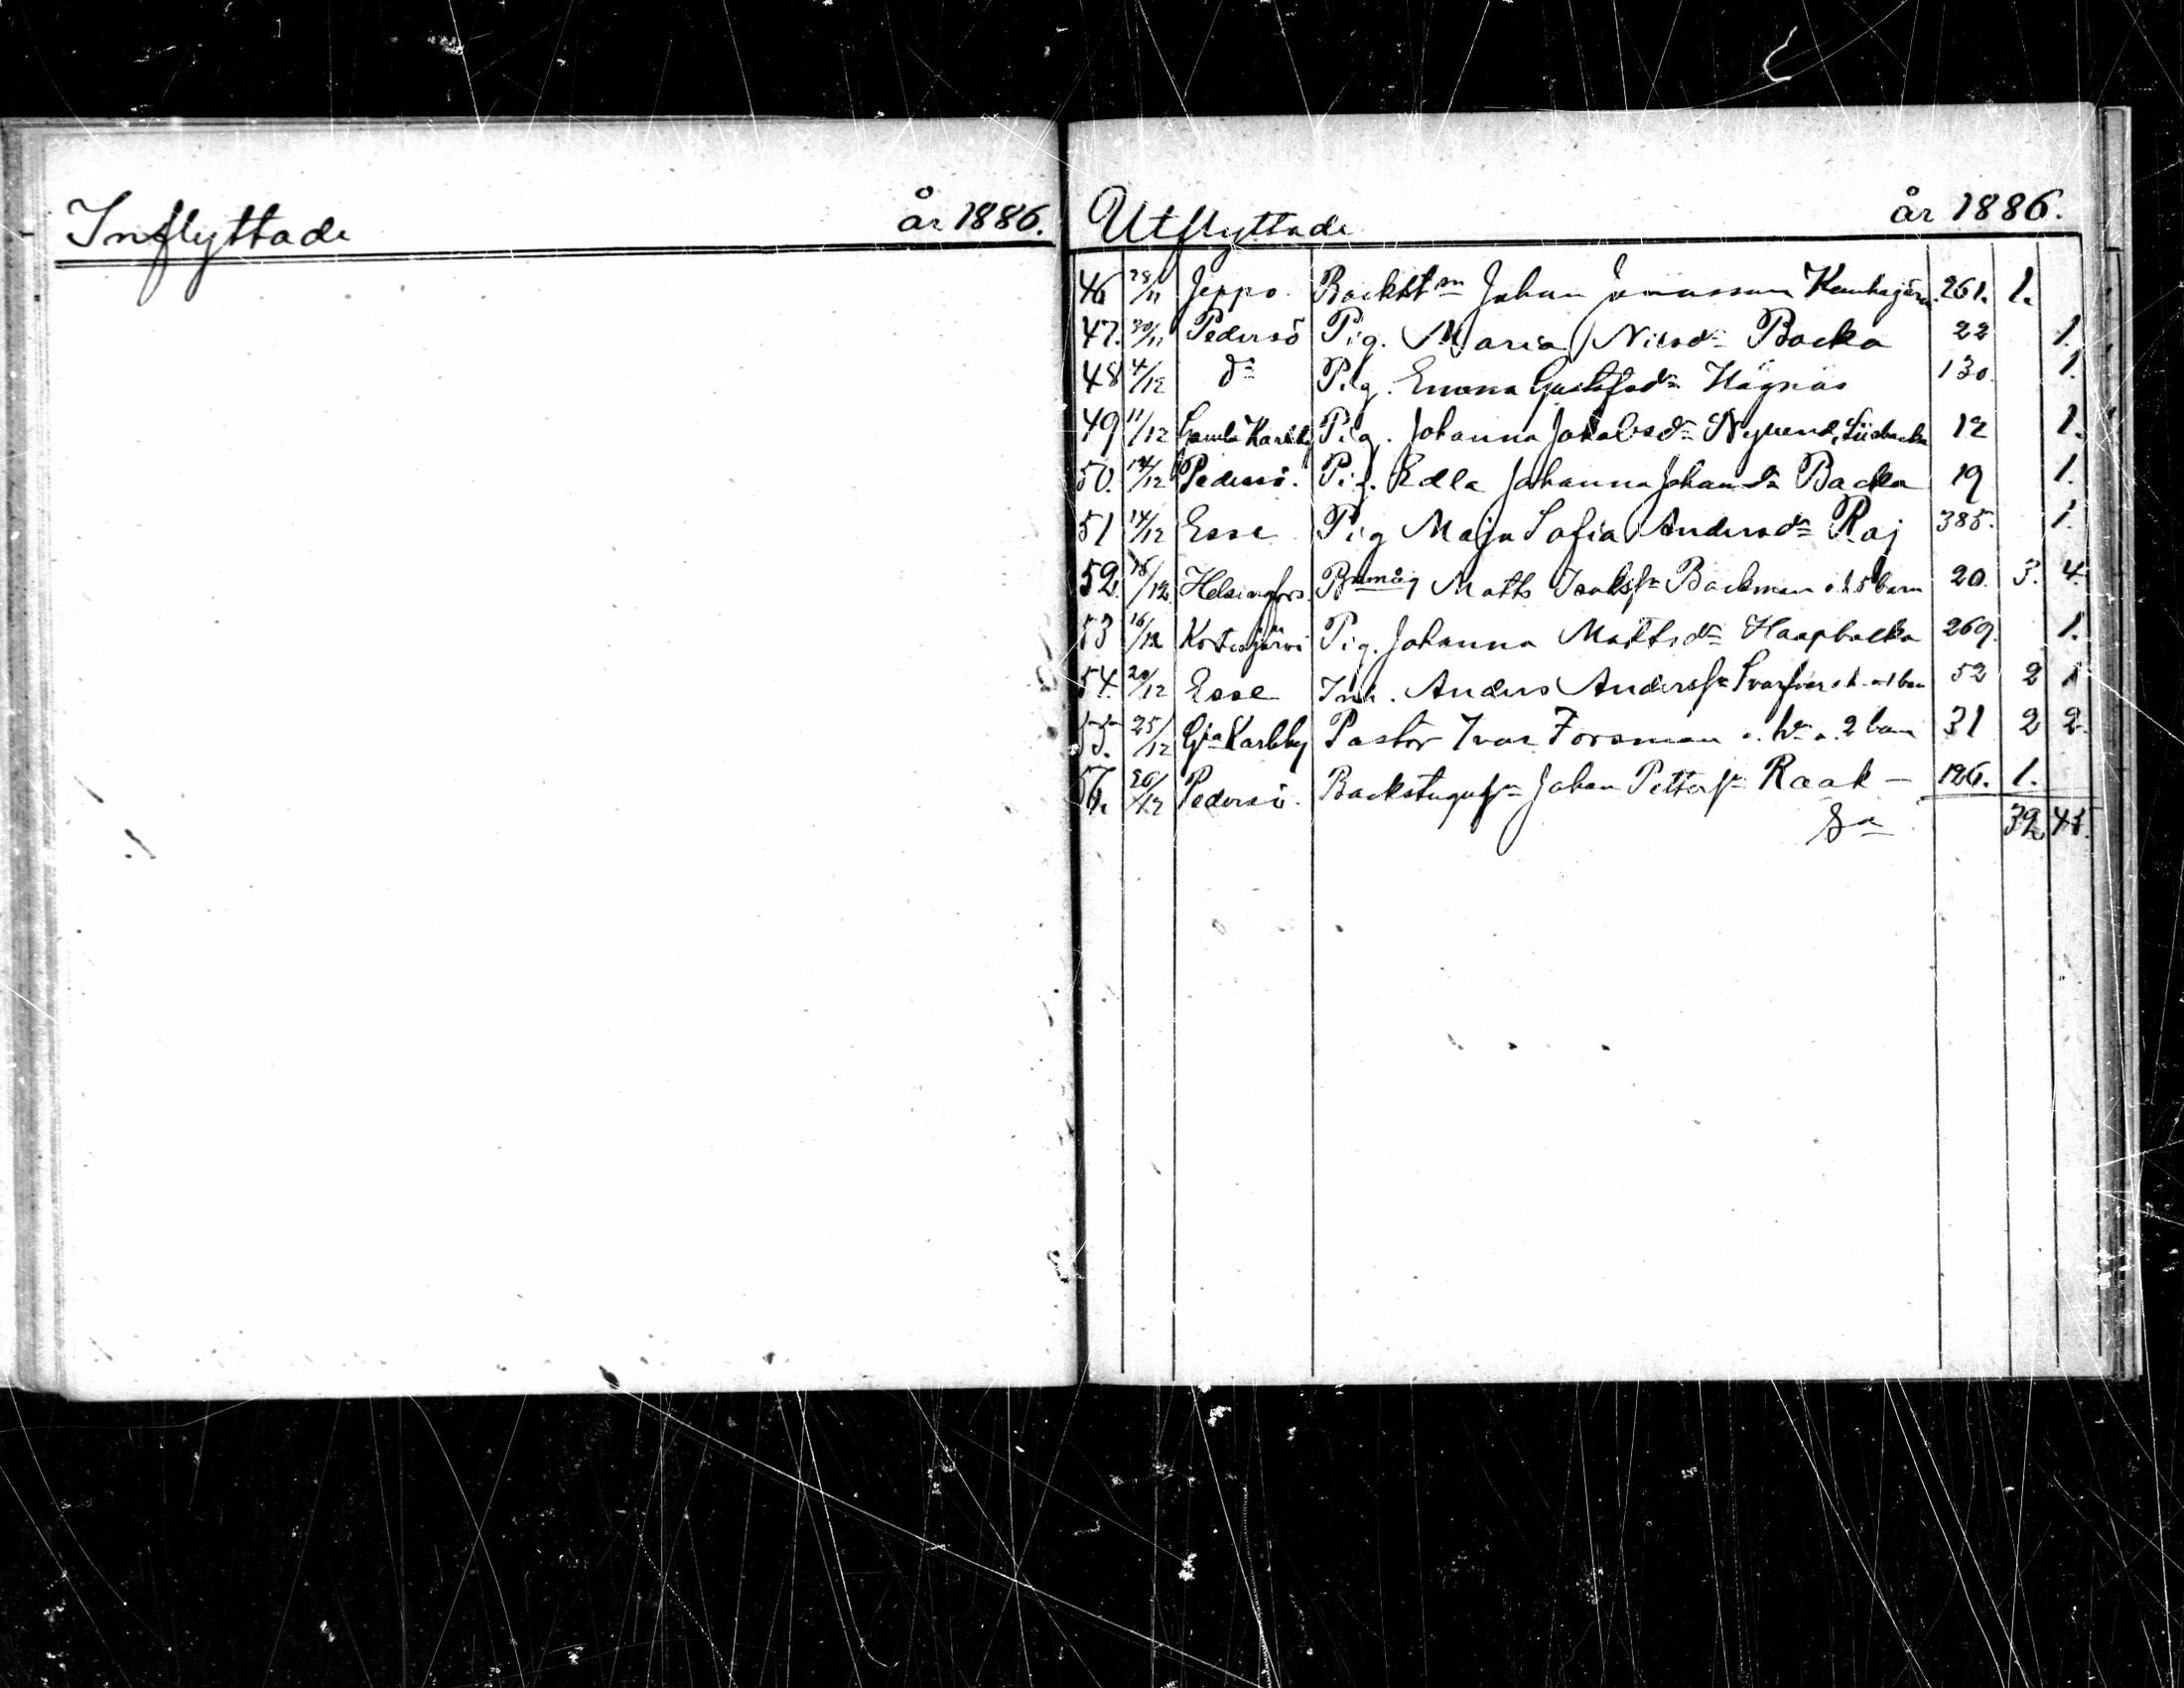 Inflyttade år 1886.
Utflyttade år 1886.
46 28/11 Jeppo. Backst sn Johan Jonasson 261. 1.
47. 30/11 Pedersö Pig. Maria Nilsdr Backa 22 1.
48 4/12 do Pig. Emma Gustafsdr Hägnäs 130. 1.
49 11/12 Gamla Karleby Pig. Johanna Jakobsdr Nylund, 12 1.
50. 14/12 Pedersö. Pig. Edla Johanna Johansdr Backa 19 1.
51 14/12 Esse Pig Maja Sofia Andersdr Raj 385. 1.
52. 15/12. Helsingfors. Bmåg Matts Isaksn Backman o. h. 5 barn 20. 3. 4.
53 16/12 Kortesjärvi Pig. Johanna Mattsdr Haapbacka 269. 1.
54. 20/12 Esse Inh. Anders Andersn Svarfvar 52 2 1
55. 25/12 Gla Karleby Pastor Ivar Forsman o. h. o. 2 barn 31 2 2
56. 26/12 Pedersö. Backstugusn Johan Pettersn Raak — 126. 1.
Sa 39 41.